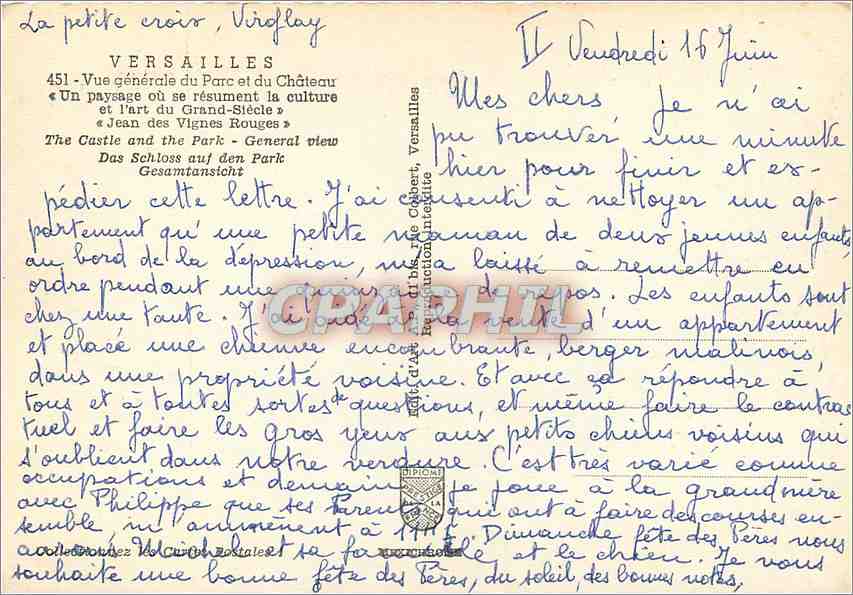 La petite croix, Viroflay
VERSAILLES
451 - Vue générale du Parc et du Château
« Un paysage où se résument la culture
et l'art du Grand-Siècle »
« Jean des Vignes Rouges »
The Castle and the Park - General view
Das Schloss auf den Park
Gesamtansicht
II Vendredi 16 Juin
Mes chers Je n'ai
pu trouver une minute
hier pour finir et ex-
pédier cette lettre. J'ai consenti à nettoyer un ap-
partement qu'une petite maman de deux jeunes enfants,
au bord de la dépression, m'a laissé à remettre en
ordre pendant une quinzaine de repos. Les enfants sont
chez une tante. J'ai aidé à la vente d'un appartement
et placé une chienne encombrante, berger malinois,
dans une propriété voisine. Et avec ça répondre à
tous et à toutes sortes de questions, et même faire le contrac
tuel et faire les gros yeux aux petits chiens voisins qui
s'oublient dans notre verdure. C'est très varié comme
occupations et demain je joue à la grand'mère
avec Philippe que ses Parents qui ont à faire des courses en-
semble m'amènent à 11 h. Dimanche fête des Pères nous
Michel et sa et le chien. Je vous
souhaite une bonne fête des Pères, du soleil, des bonnes notes,
Edit. d'Art 61 bis, rue Colbert, Versailles
Reproduction interdite
CPAPHIL
DIPLOME
Collectionnez les Cartes Postales